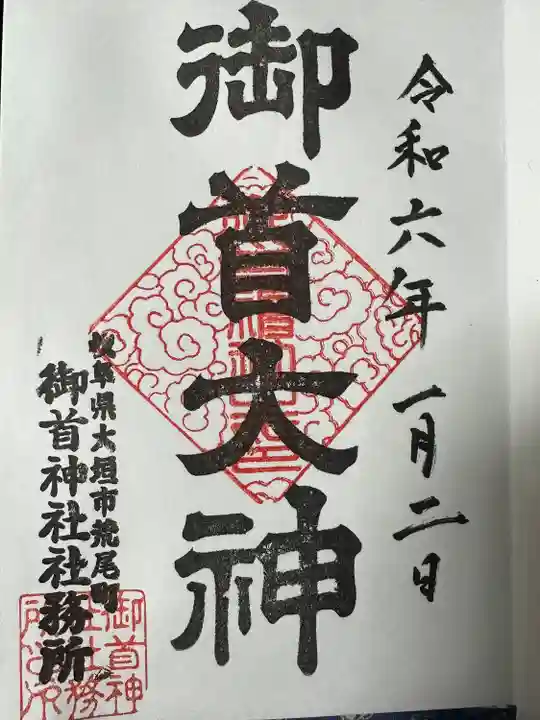 令和六年一月二日
御首大神
岐阜県大垣市荒尾町
御首神社社務所
御首神
社社務
所之印